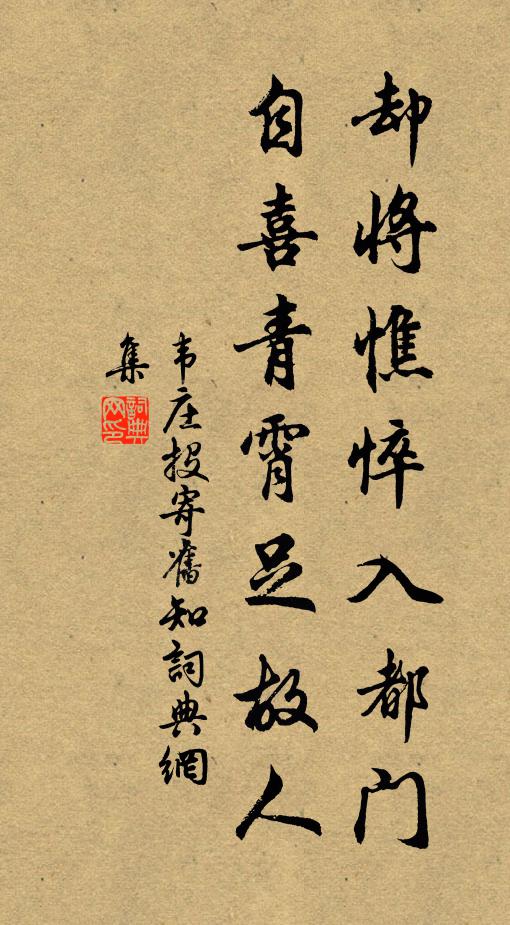 却将憔悴入都门
自喜青霄足故人
韦庄投寄舊知詞典網
集
詞典
网印